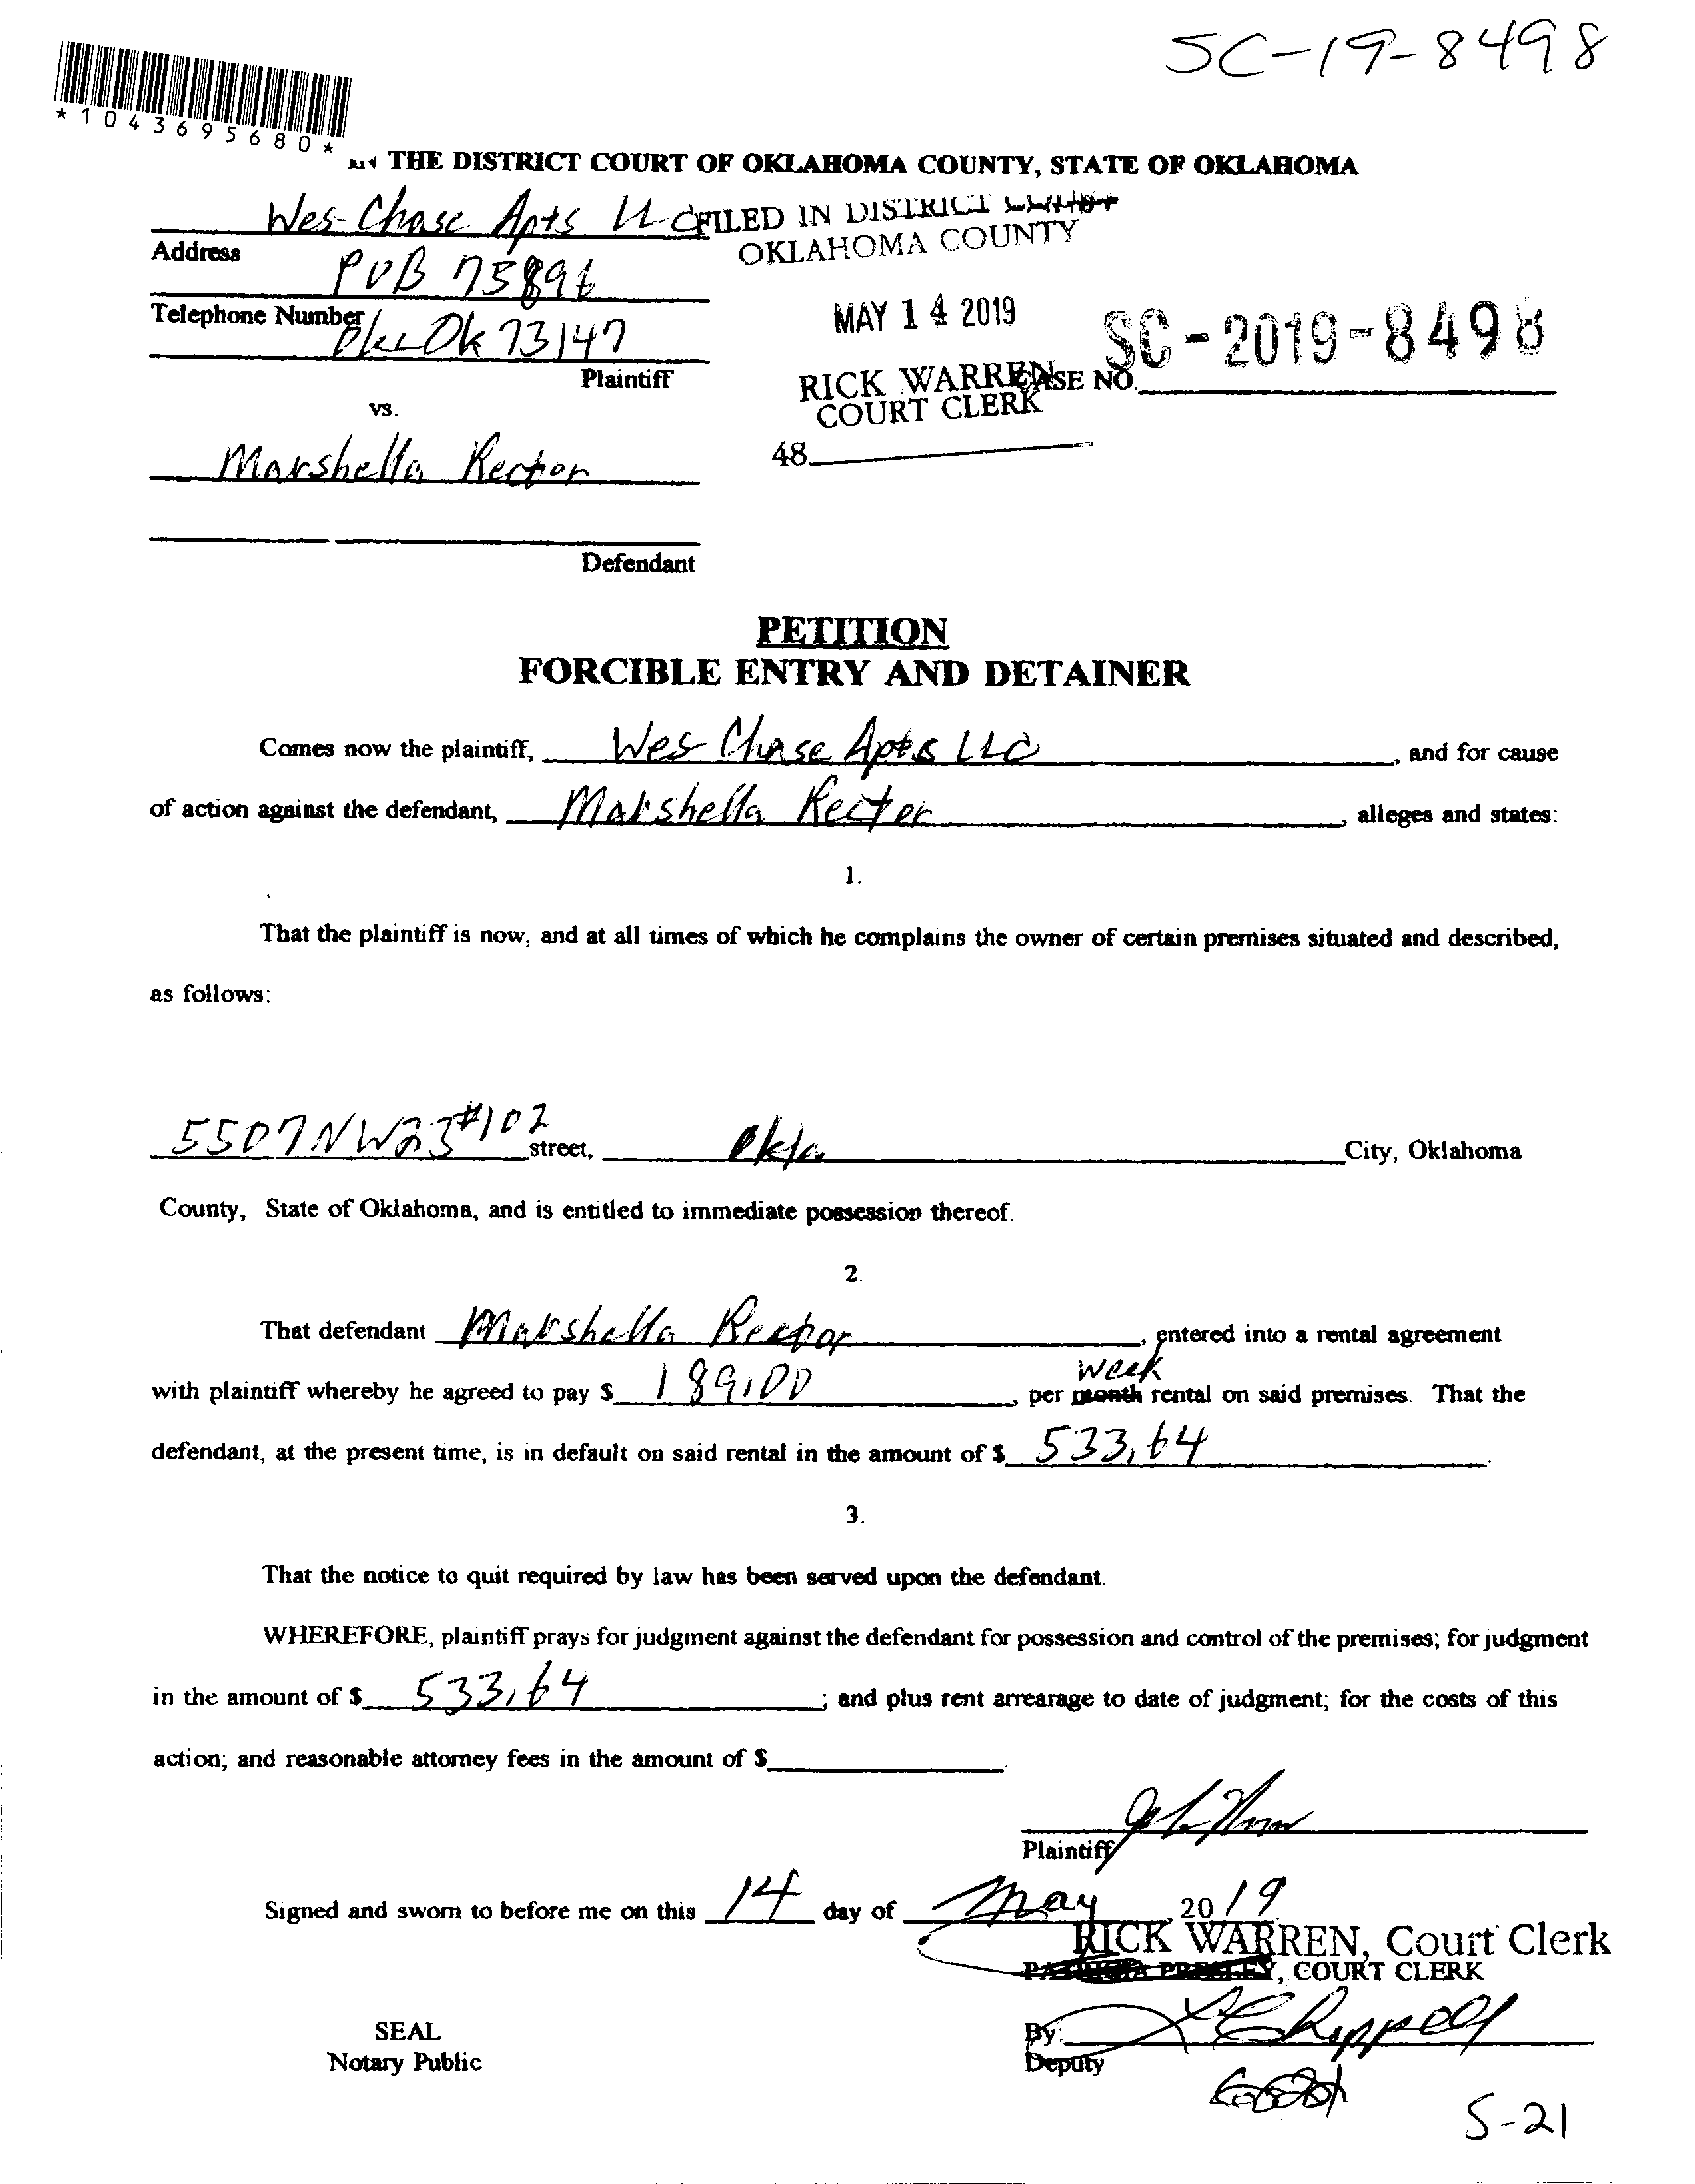 SC-19-8498
*1043695680*
THE DISTRICT COURT OF OKLAHOMA COUNTY, STATE OF OKLAHOMA
Wes Chase Apts LLC
FILED IN DISTRICT COURT
OKLAHOMA COUNTY
Address
POB 75896
MAY 14 2019
Telephone Number
Okc Ok 73147
SC-2019-8498
Plaintiff
RICK WARREN
CASE NO.
COURT CLERK
vs.
48
Marshella Rector
Defendant
PETITION
FORCIBLE ENTRY AND DETAINER
Comes now the plaintiff, Wes Chase Apts LLC, and for cause
of action against the defendant, Marshella Rector, alleges and states:
1.
That the plaintiff is now, and at all times of which he complains the owner of certain premises situated and described,
as follows:
5507 NW 23 #102 street, Okla City, Oklahoma
County, State of Oklahoma, and is entitled to immediate possession thereof.
2.
That defendant Marshella Rector, entered into a rental agreement
week
with plaintiff whereby he agreed to pay $ 189.00, per month rental on said premises. That the
defendant, at the present time, is in default on said rental in the amount of $ 533.64.
3.
That the notice to quit required by law has been served upon the defendant.
WHEREFORE, plaintiff prays for judgment against the defendant for possession and control of the premises; for judgment
in the amount of $ 533.64; and plus rent arrearage to date of judgment; for the costs of this
action; and reasonable attorney fees in the amount of $
Plaintiff
Signed and sworn to before me on this 14 day of May 2019
RICK WARREN, Court Clerk
, COURT CLERK
SEAL
By:
Notary Public
Deputy
5-21